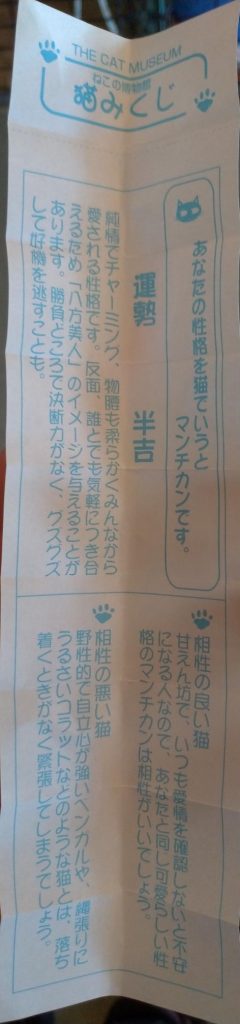 THE CAT MUSEUM
ねこの博物館
猫みくじ
あなたの性格を猫でいうと
マンチカンです。
運勢　半吉
純情でチャーミング、物腰も柔らかくみんなから
愛される性格です。反面、誰とでも気軽につき合
えるため「八方美人」のイメージを与えることが
あります。勝負どころで決断力がなく、グズグズ
して好機を逃すことも。
相性の良い猫
甘えん坊で、いつも愛情を確認しないと不安
になる人なので、あなたと同じ可愛らしい性
格のマンチカンは相性がいいでしょう。
相性の悪い猫
野性的で自立心が強いベンガルや、縄張りに
うるさいコラットなどのような猫とは、落ち
着くときがなく緊張してしまうでしょう。